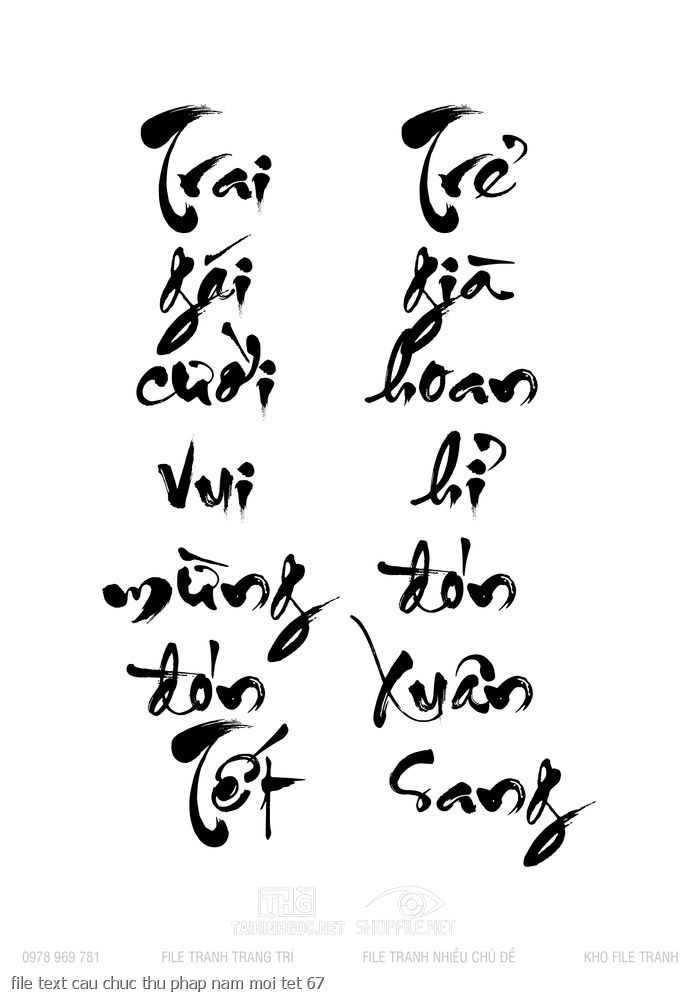 Trai
gái
cười
vui
mừng
đón
Tết
Trẻ
già
hoan
hỉ
đón
Xuân
Sang
THG
TAIHINHGOC.NET
SHOPFILE.NET
0978 969 781
FILE TRANH TRANG TRÍ
FILE TRANH NHIỀU CHỦ ĐỀ
KHO FILE TRANH
file text cau chuc thu phap nam moi tet 67